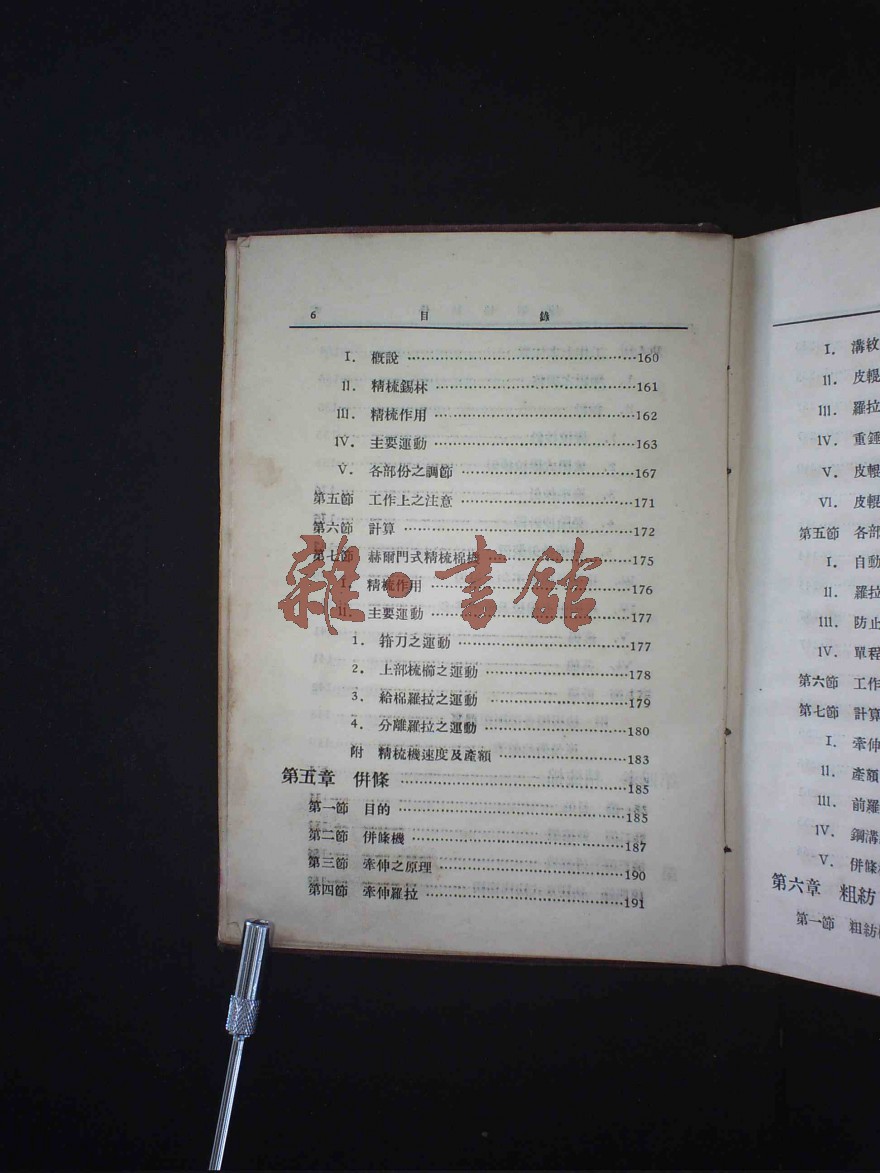 6 目 錄
I. 概說 ……160
II. 精梳錫林 ……161
III. 精梳作用 ……162
IV. 主要運動 ……163
V. 各部份之調節 ……167
第五節 工作上之注意 ……171
第六節 計算 ……172
第七節 赫爾門式精梳棉機 ……175
I. 精梳作用 ……176
II. 主要運動 ……177
1. 箝刀之運動 ……177
2. 上部梳櫛之運動 ……178
3. 給棉羅拉之運動 ……179
4. 分離羅拉之運動 ……180
附 精梳機速度及產額 ……183
第五章 併條 ……185
第一節 目的 ……185
第二節 併條機 ……187
第三節 牽伸之原理 ……190
第四節 牽伸羅拉 ……191
雜·書館
I. 溝紋
II. 皮輥
III. 羅拉
IV. 重錘
V. 皮輥
VI. 皮輥
第五節 各部
I. 自動
II. 羅拉
III. 防止
IV. 單程
第六節 工作
第七節 計算
I. 牽伸
II. 產額
III. 前羅
IV. 鋼溝
V. 併條
第六章 粗紡
第一節 粗紡